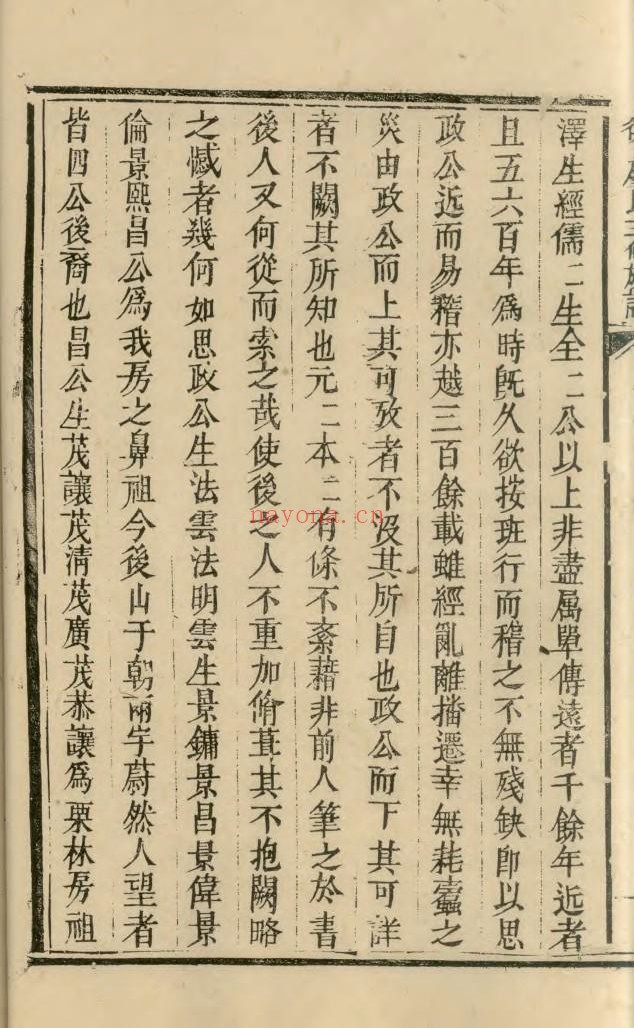 澤生經儒二生全二公以上非盡属單傳遠者千餘年近者
且五六百年爲時旣久欲按班行而稽之不無殘缺卽以思
政公近而易稽亦越三百餘載雖經亂離播遷幸無耗蠹之
災由政公而上其可攷者不没其所自也政公而下其可詳
者不闕其所知也元元本本有條不紊藉非前人筆之於書
後人又何從而索之哉使後之人不重加脩葺其不抱闕略
之憾者幾何如思政公生法雲法明雲生景鏞景昌景偉景
倫景熙昌公爲我房之鼻祖今後山于朝兩宇蔚然人望者
皆四公後裔也昌公生茂讓茂清茂廣茂恭讓爲栗林房祖
nayona.cn